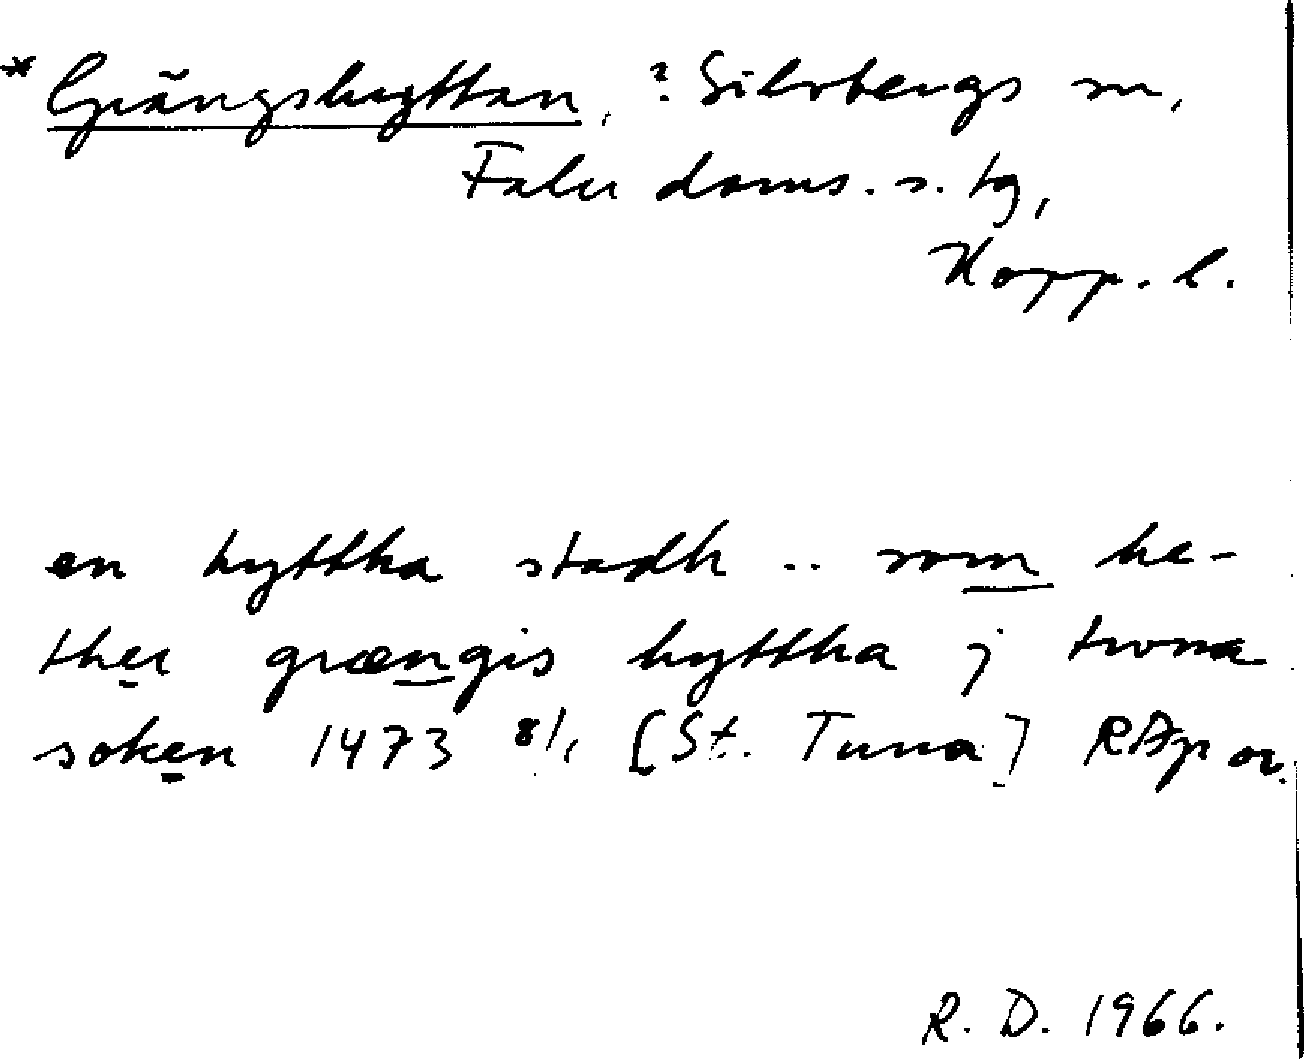 * Grängshyttan, ? Silvbergs sn,
Falu doms. s. tg,
Kopp. l.
en hyttha stadh .. som he-
ther grængis hyttha j twna
soken 1473 8/1 [St. Tuna] RAp or.
R. D. 1966.